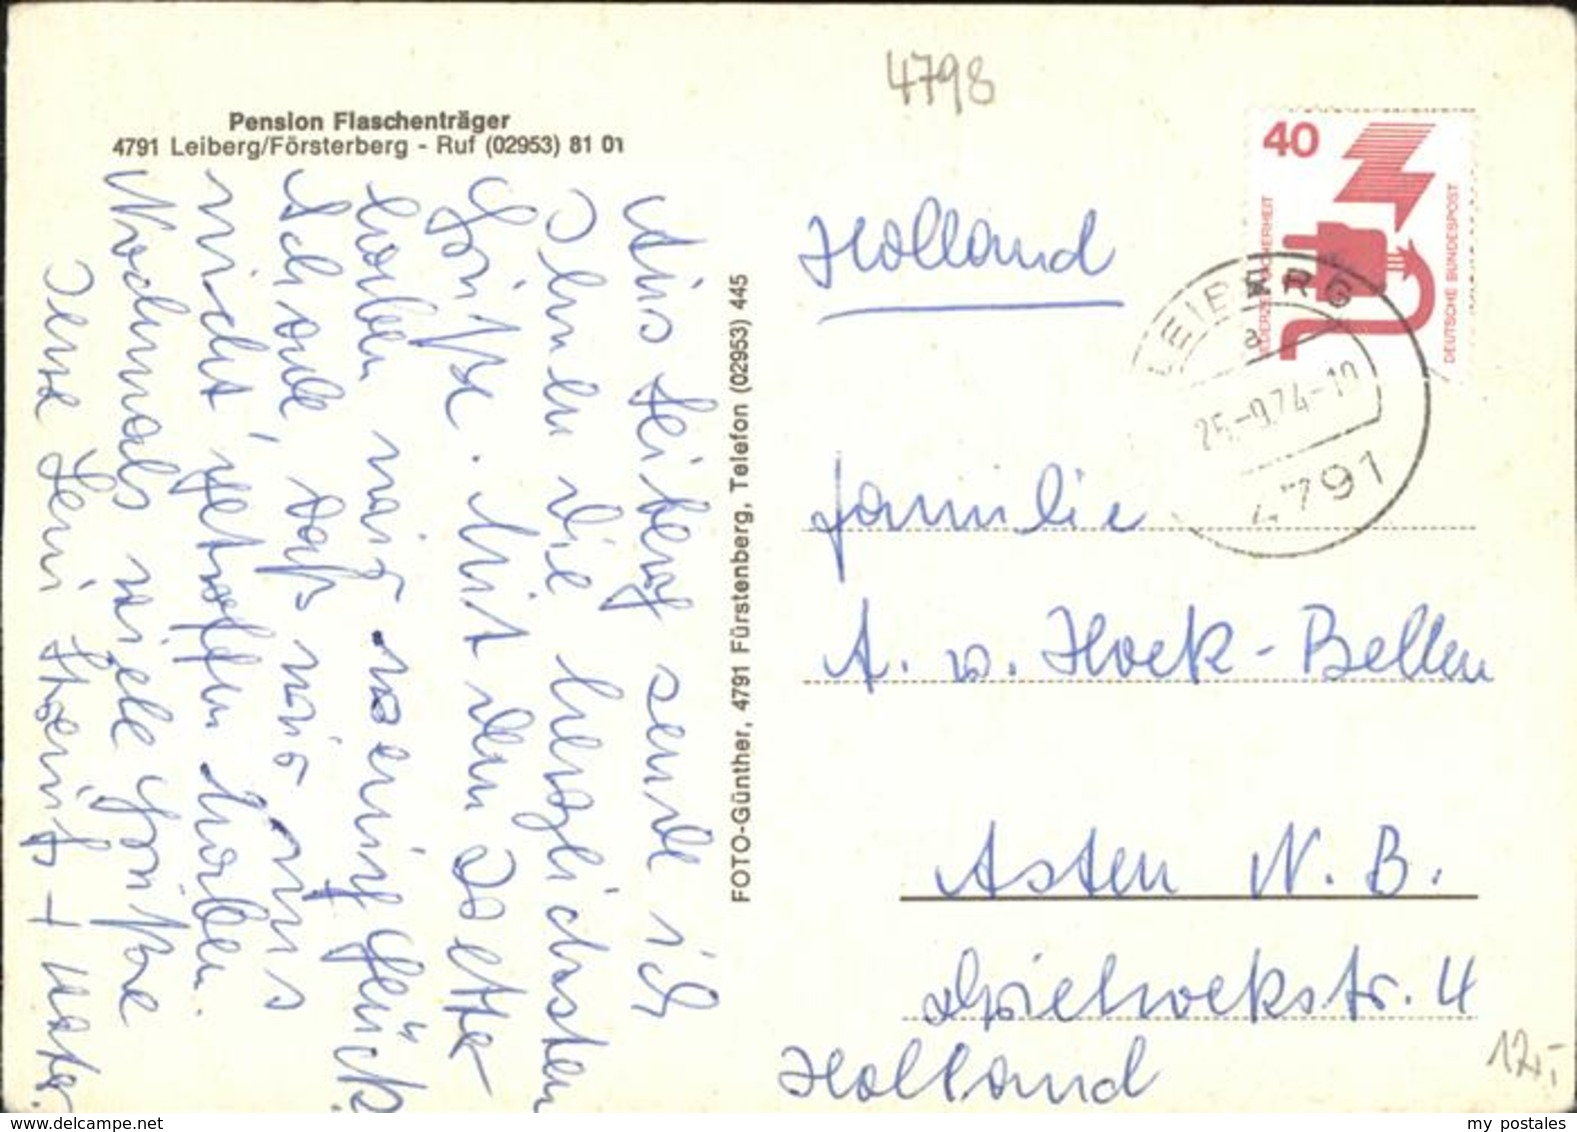 4798
Pension Flaschenträger
4791 Leiberg/Försterberg - Ruf (02953) 81 01
Aus Leiberg sende ich
Ihnen die herzlichsten
Grüße. Mit dem Wetter
haben wir wenig Glück.
Schade, daß wir uns
nicht getroffen haben.
Nochmals viele Grüße
Ihre Leni + Vater.
FOTO-Günther, 4791 Fürstenberg, Telefon (02953) 445
40
DEUTSCHE BUNDESPOST
LEIBERG
a
25.-9.74-10
4791
Holland
Familie
A. v. Hoek-Bellen
Asten N. B.
Driehoekstr. 4
Holland
12,-
www.delcampe.net
my_postales